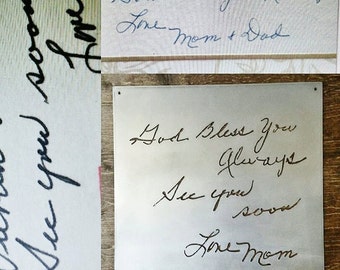 See you soon
Love
Love
Mom & Dad
God Bless You
Always
See you
soon
Love Mom